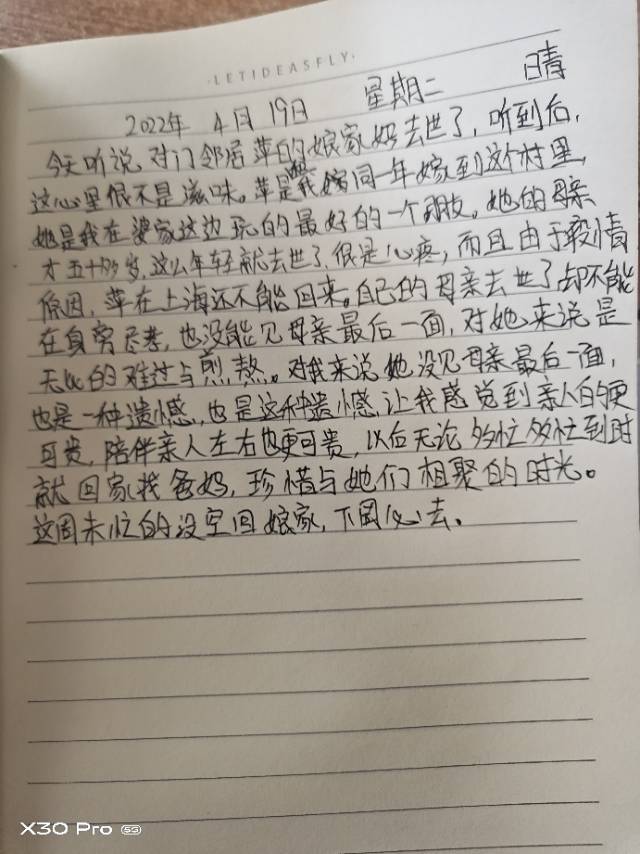 ·LETIDEASFLY·
2022年 4月 19日 星期二 晴
今天听说对门邻居苹的娘家妈去世了,听到后,
这心里很不是滋味。苹是和我同一年嫁到这个村里,
她是我在婆家这边玩的最好的一个朋友。她的母亲
才五十多岁,这么年轻就去世了,很是心疼,而且由于疫情
原因,苹在上海还不能回来。自己的母亲去世了却不能
在身旁尽孝,也没能见母亲最后一面,对她来说是
无比的难过与煎熬。对我来说她没见母亲最后一面,
也是一种遗憾,也是这种遗憾让我感觉到亲人的更
可贵,陪伴亲人左右也更可贵,以后无论多忙多忙到时
就回家找爸妈,珍惜与她们相聚的时光。
这周末忙的没空回娘家,下周必去。
X30 Pro 5G